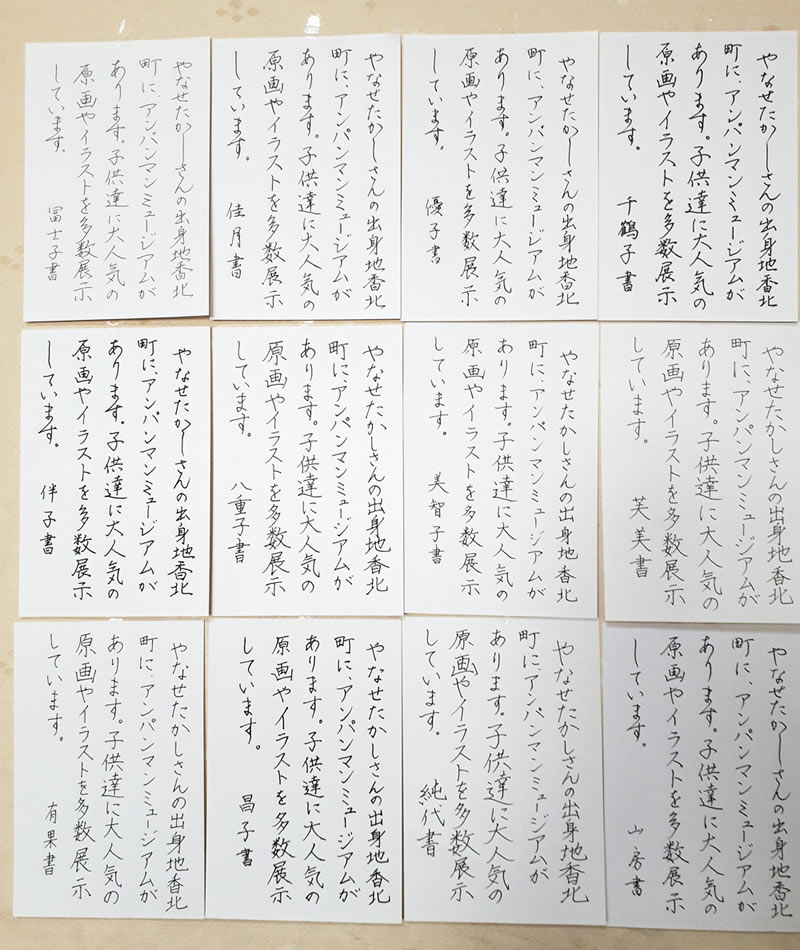 やなせたかしさんの出身地香北
町に、アンパンマンミュージアムが
あります。子供達に大人気の
原画やイラストを多数展示
しています。 千鶴子書
やなせたかしさんの出身地香北
町に、アンパンマンミュージアムが
あります。子供達に大人気の
原画やイラストを多数展示
しています。 優子書
やなせたかしさんの出身地香北
町に、アンパンマンミュージアムが
あります。子供達に大人気の
原画やイラストを多数展示
しています。 佳月書
やなせたかしさんの出身地香北
町に、アンパンマンミュージアムが
あります。子供達に大人気の
原画やイラストを多数展示
しています。 冨士子書
やなせたかしさんの出身地香北
町に、アンパンマンミュージアムが
あります。子供達に大人気の
原画やイラストを多数展示
しています。 芙美書
やなせたかしさんの出身地香北
町に、アンパンマンミュージアムが
あります。子供達に大人気の
原画やイラストを多数展示
しています。 美智子書
やなせたかしさんの出身地香北
町に、アンパンマンミュージアムが
あります。子供達に大人気の
原画やイラストを多数展示
しています。 八重子書
やなせたかしさんの出身地香北
町に、アンパンマンミュージアムが
あります。子供達に大人気の
原画やイラストを多数展示
しています。 伴子書
やなせたかしさんの出身地香北
町に、アンパンマンミュージアムが
あります。子供達に大人気の
原画やイラストを多数展示
しています。 山房書
やなせたかしさんの出身地香北
町に、アンパンマンミュージアムが
あります。子供達に大人気の
原画やイラストを多数展示
しています。 純代書
やなせたかしさんの出身地香北
町に、アンパンマンミュージアムが
あります。子供達に大人気の
原画やイラストを多数展示
しています。 昌子書
やなせたかしさんの出身地香北
町に、アンパンマンミュージアムが
あります。子供達に大人気の
原画やイラストを多数展示
しています。 有果書